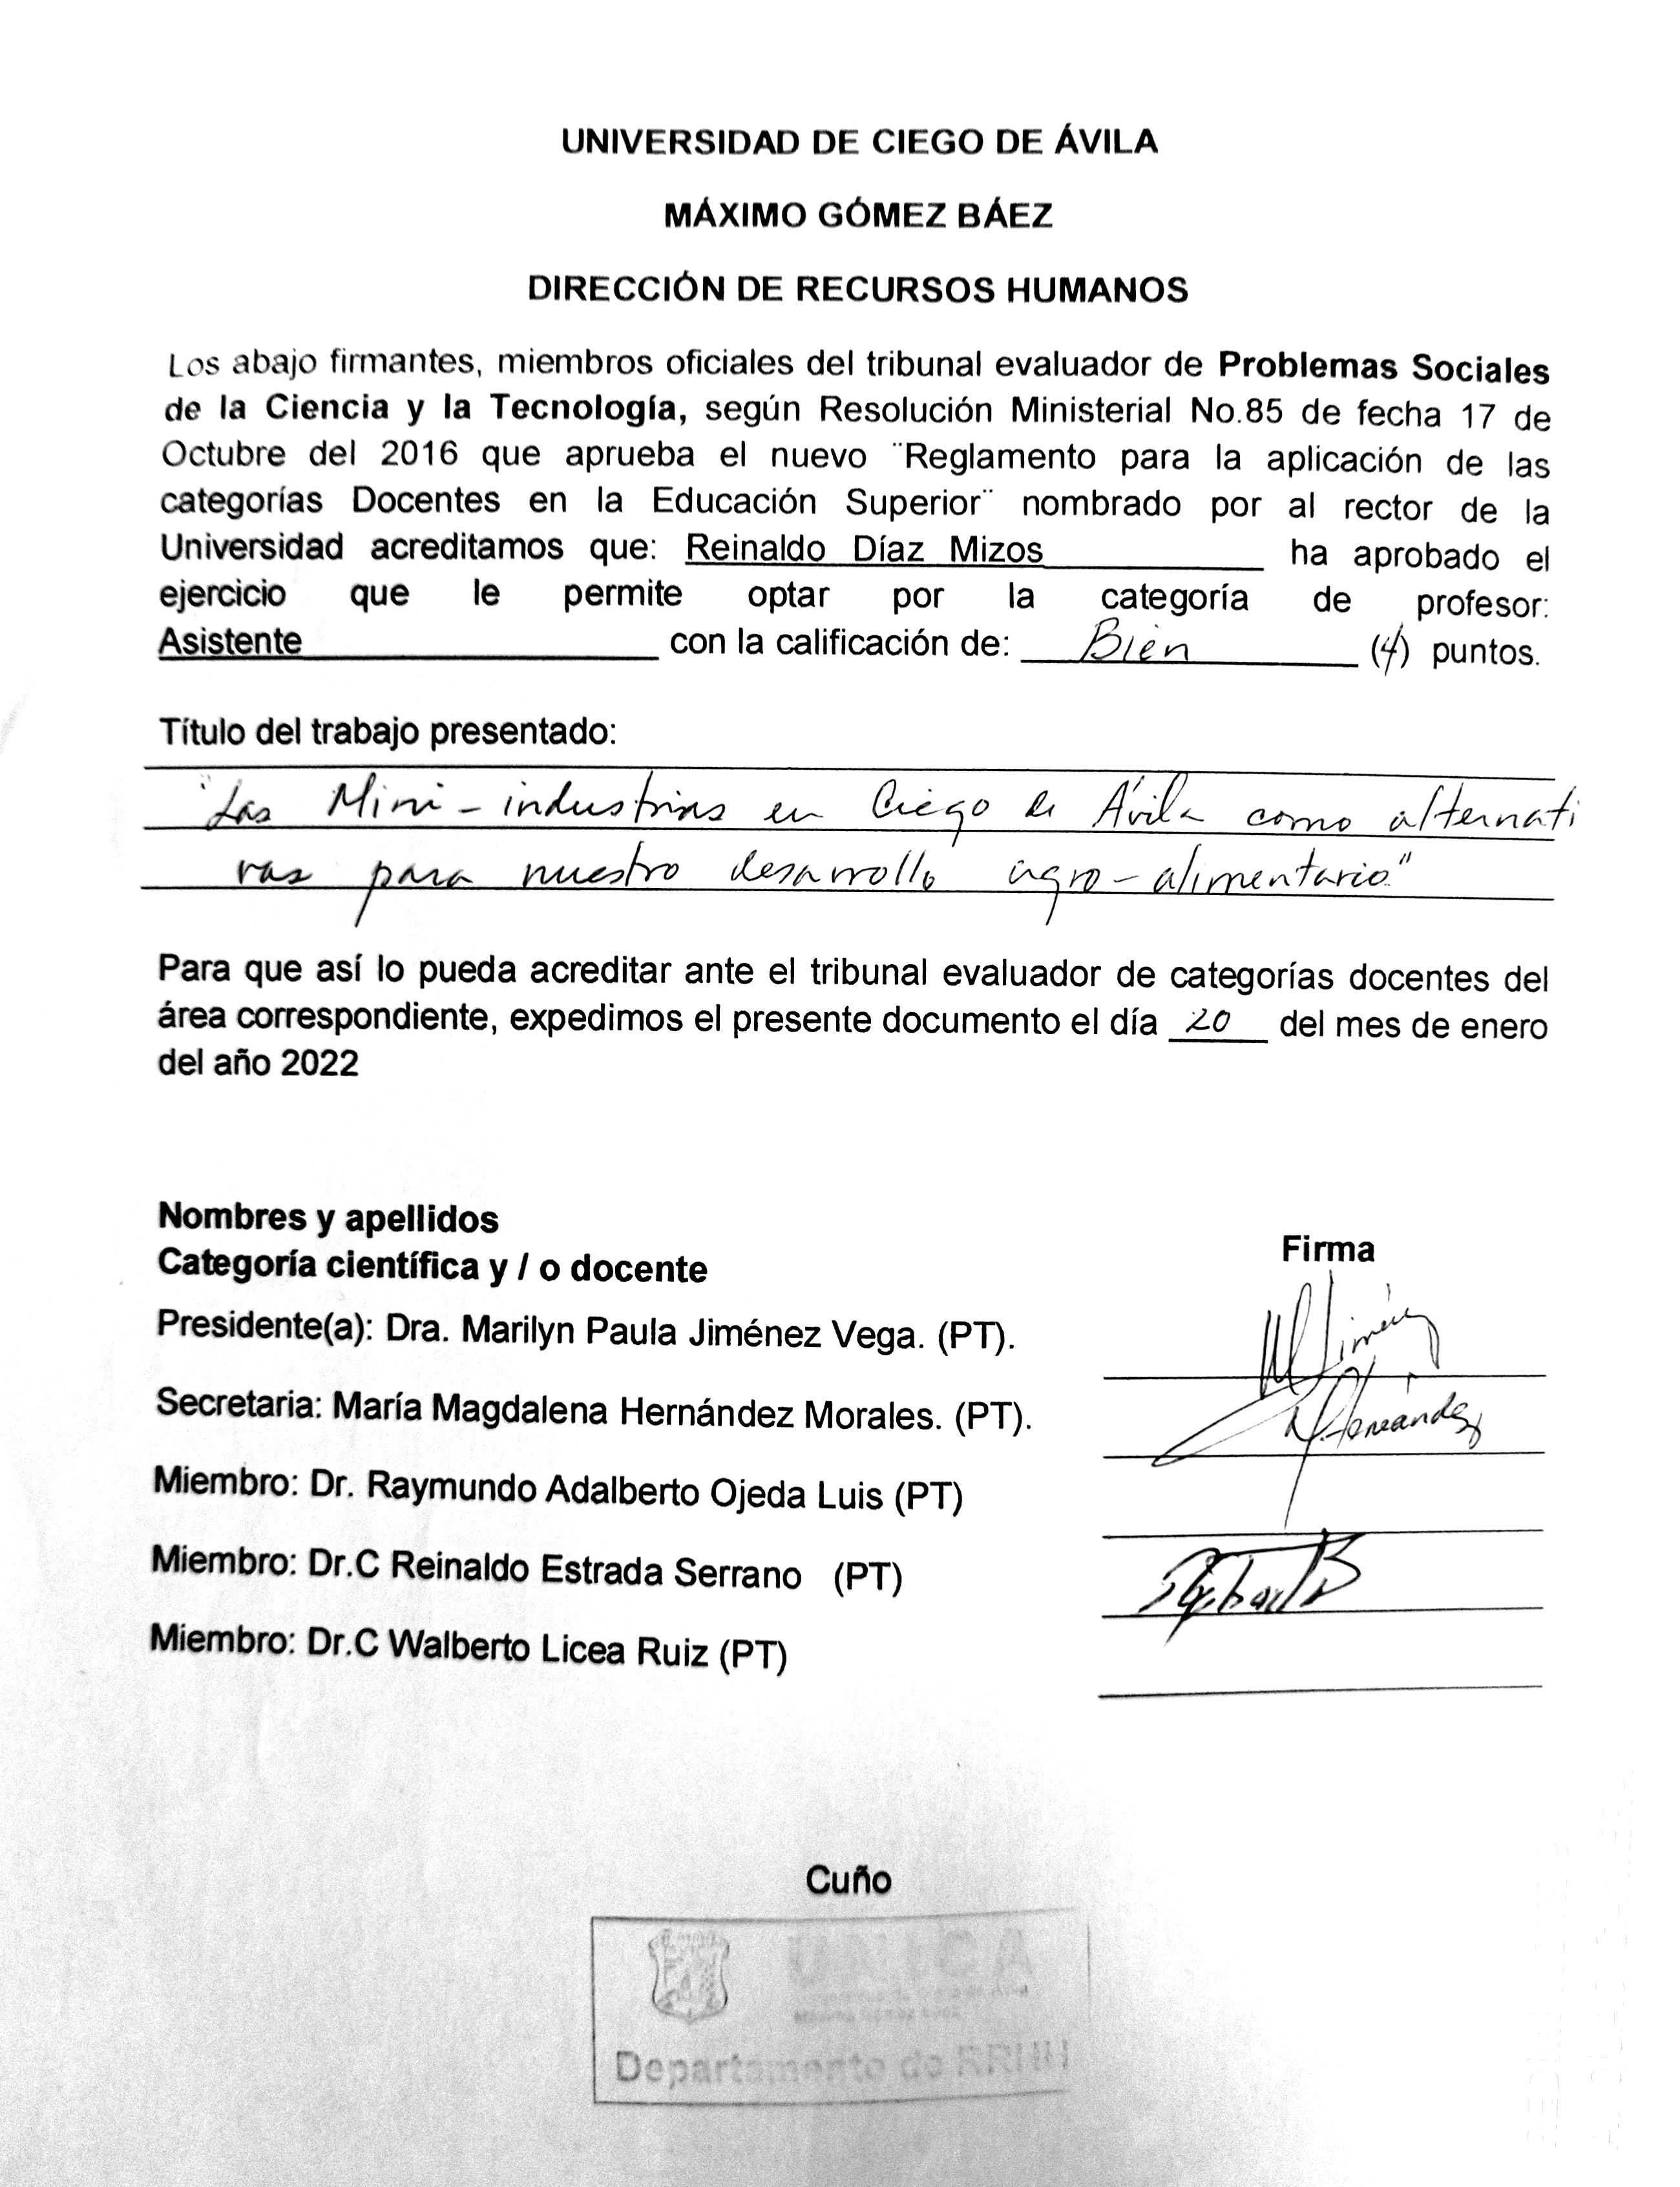 UNIVERSIDAD DE CIEGO DE ÁVILA
MÁXIMO GÓMEZ BÁEZ
DIRECCIÓN DE RECURSOS HUMANOS
Los abajo firmantes, miembros oficiales del tribunal evaluador de Problemas Sociales
de la Ciencia y la Tecnología, según Resolución Ministerial No.85 de fecha 17 de
Octubre del 2016 que aprueba el nuevo ¨Reglamento para la aplicación de las
categorías Docentes en la Educación Superior¨ nombrado por al rector de la
Universidad acreditamos que: Reinaldo Díaz Mizos ha aprobado el
ejercicio que le permite optar por la categoría de profesor:
Asistente con la calificación de: Bien (4) puntos.
Título del trabajo presentado:
"Las Mini-industrias en Ciego de Ávila como alternati
vas para nuestro desarrollo agro-alimentario"
Para que así lo pueda acreditar ante el tribunal evaluador de categorías docentes del
área correspondiente, expedimos el presente documento el día 20 del mes de enero
del año 2022
Nombres y apellidos
Categoría científica y / o docente
Firma
Presidente(a): Dra. Marilyn Paula Jiménez Vega. (PT).
MJiménez
Secretaria: María Magdalena Hernández Morales. (PT).
M.Hernández
Miembro: Dr. Raymundo Adalberto Ojeda Luis (PT)
Miembro: Dr.C Reinaldo Estrada Serrano (PT)
Miembro: Dr.C Walberto Licea Ruiz (PT)
Cuño
UNICA
Máximo Gómez Báez
Departamento de RRHH